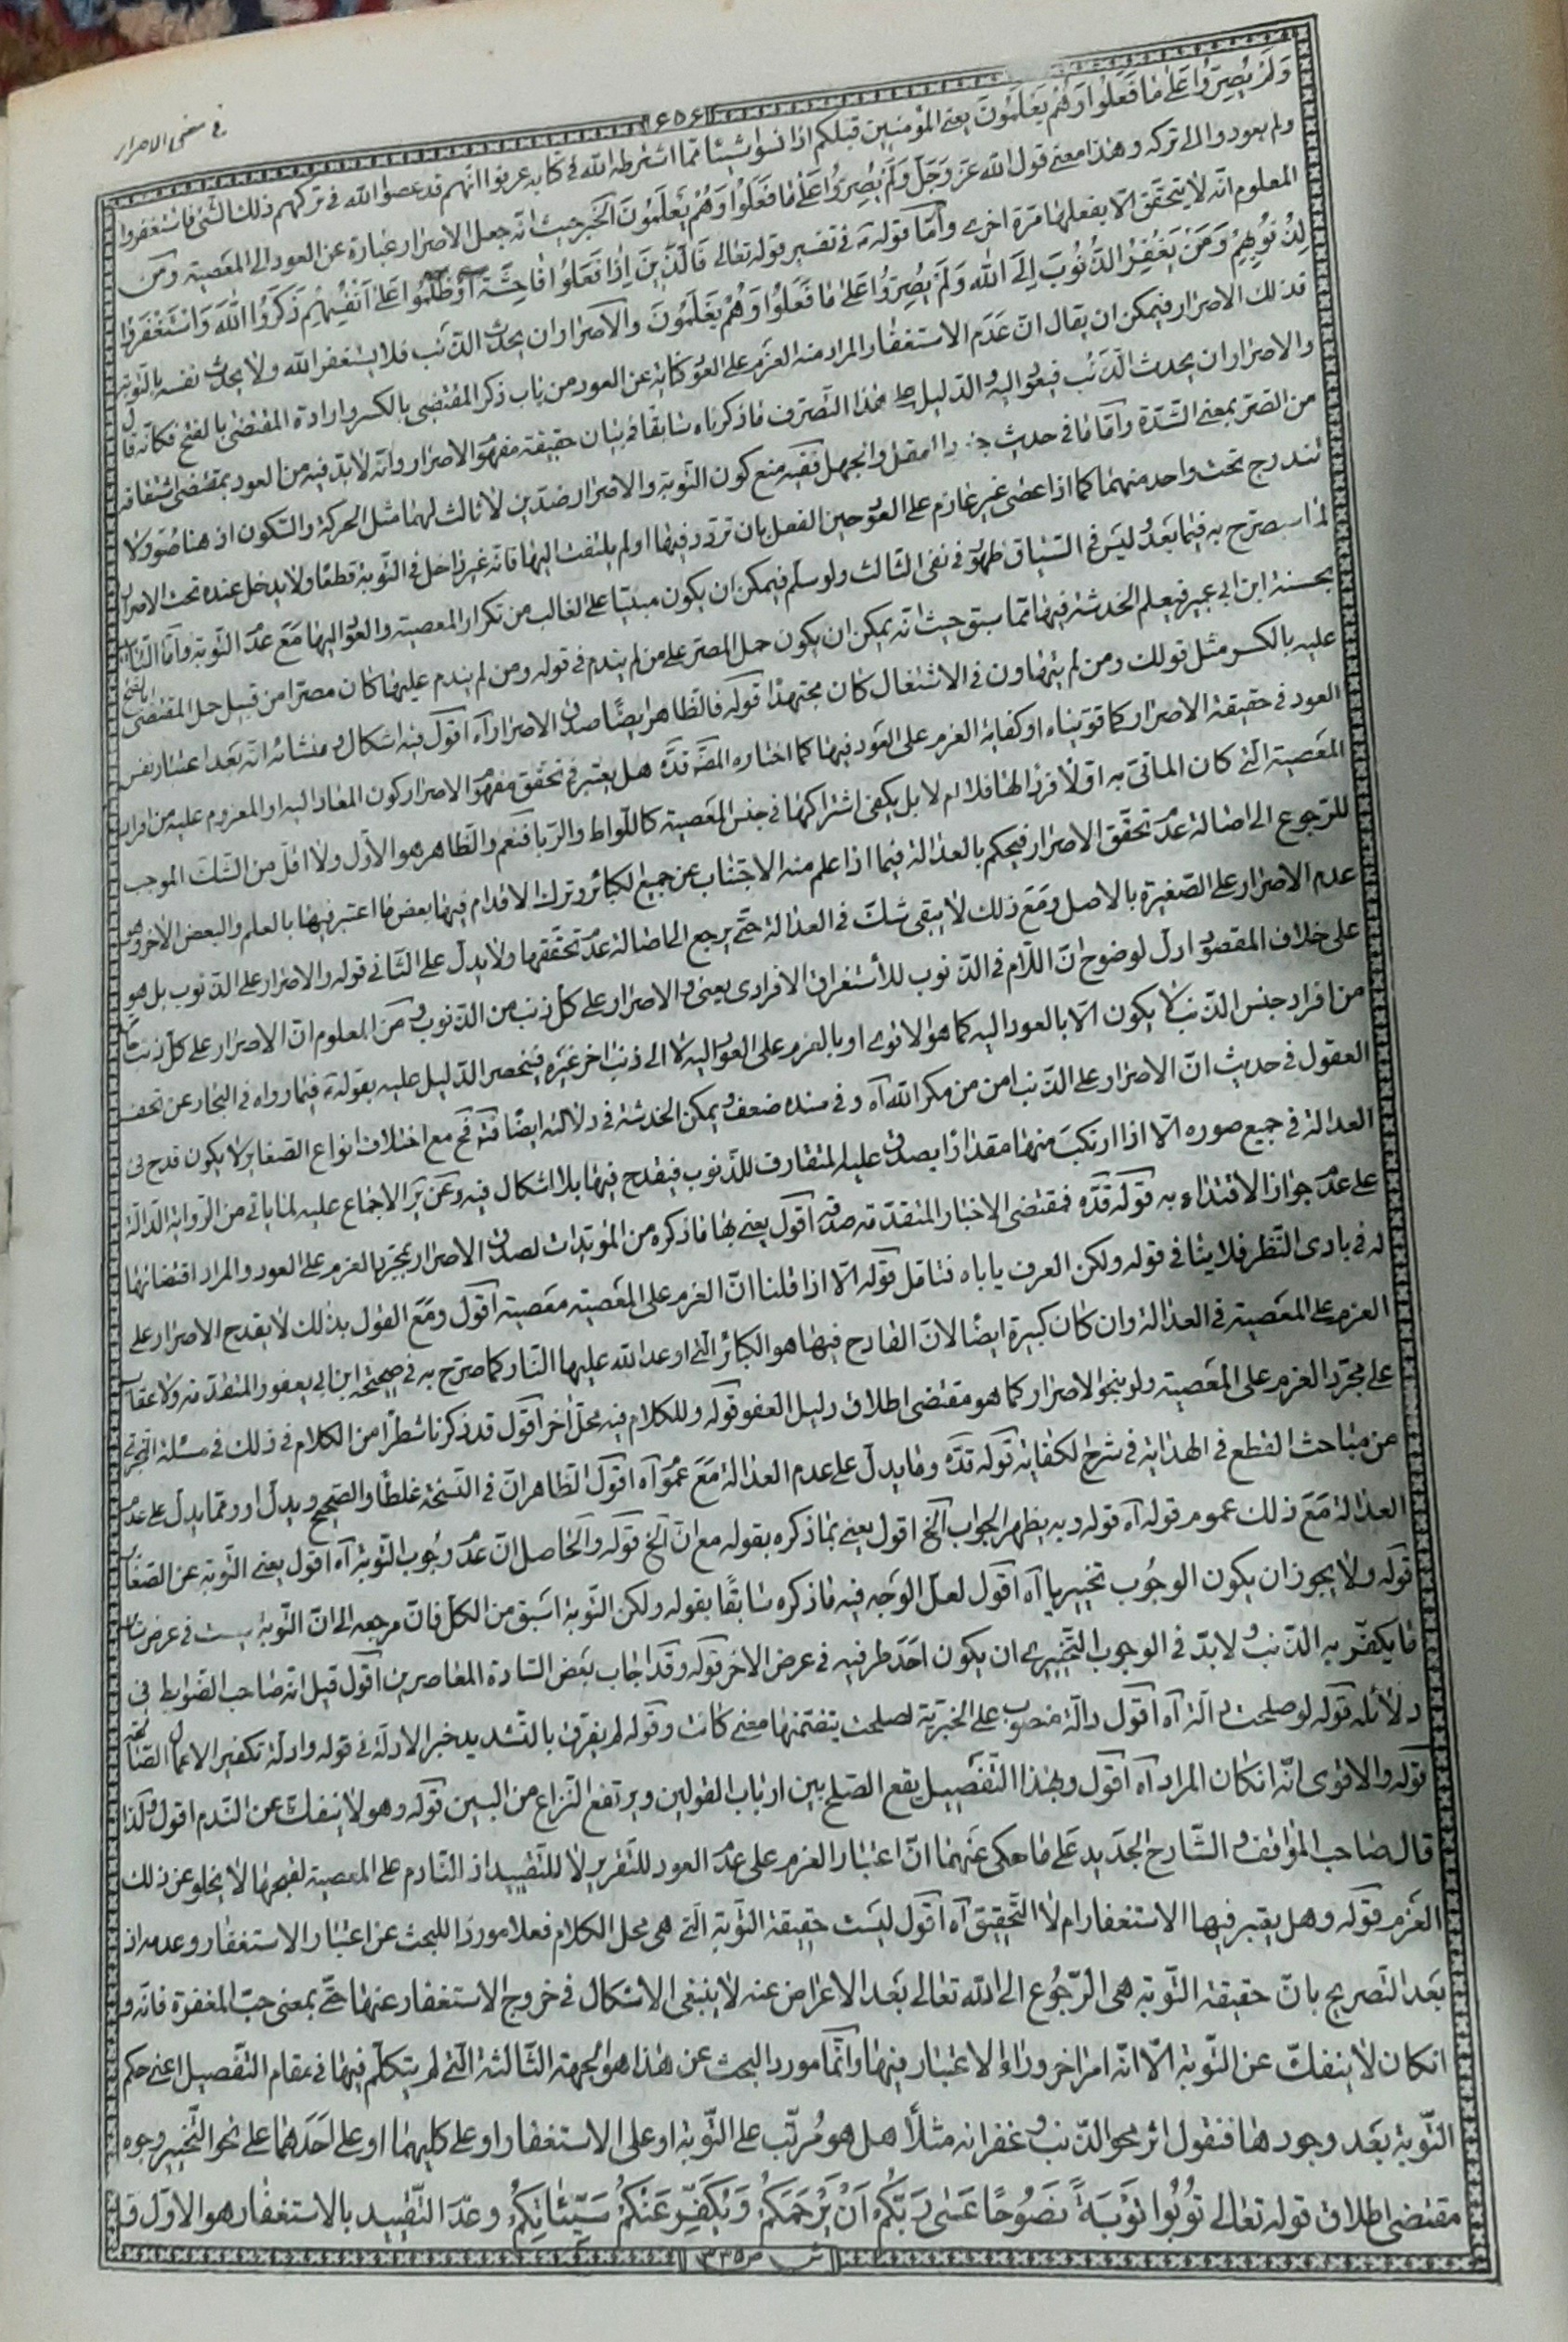 في معنى الاصرار
٦٥٦
وَلَمْ يُصِرُّوا عَلىٰ مٰا فَعَلُوا وَهُمْ يَعْلَمُونَ يعنى المؤمنين قبلكم اذا نسوا شيئا مما اشترطه الله فى كتابه عرفوا انهم قد عصوا الله فى تركهم ذلك الشئ فاستغفروا
ولم يعودوا الى تركه وهذا معنى قول الله عزّ وجلّ وَلَمْ يُصِرُّوا عَلىٰ مٰا فَعَلُوا وَهُمْ يَعْلَمُونَ الخبر حيث انه جعل الاصرار عبارة عن العود الى المعصية ومن
المعلوم انّه لا يتحقّق الّا بفعلها مرّة اخرى وأمّا قوله ع فى تفسير قوله تعالى وَالَّذِينَ اِذٰا فَعَلُوا فٰاحِشَةً أَوْ ظَلَمُوا عَلىٰ اَنْفُسِهِمْ ذَكَرُوا اللهَ وَاسْتَغْفَرُوا
لِذُنُوبِهِمْ وَمَنْ يَغْفِرُ الذُّنُوبَ اِلَّا اللهُ وَلَمْ يُصِرُّوا عَلىٰ مٰا فَعَلُوا وَهُمْ يَعْلَمُونَ والاصرار ان يحدث الذّنب فلا يستغفر الله ولا يحدّث نفسه بالتّوبة
فذلك الاصرار فيمكن ان يقال انّ عدم الاستغفار والمراد منه العزم على العود كناية عن العود من باب ذكر المقتضى بالكسر وارادة المقتضى بالفتح فكانّه قال
والاصرار ان يحدث الذّنب فيعود اليه والدّليل على هذا التّصرف ما ذكرناه سابقا فى بيان حقيقة مفهوم الاصرار وانّه لا بدّ فيه من العود بمقتضى اشتقاقه
من الصّر بمعنى الشّدّة وامّا ما فى حديث جنود العقل والجهل ففيه منع كون التّوبة والاصرار ضدّين لا ثالث لهما مثل الحركة والسّكون اذ هنا صور لا
تندرج تحت واحد منهما كما اذا عصى غير عازم على العود حين الفعل بان تردّد فيها او لم يلتفت اليها فانّه غير داخل فى التّوبة قطعا ولا يدخل عنده تحت الاصرار
لما سيصرّح به فيما بعد وليس فى السّياق ظهور فى نفى الثّالث ولو سلّم فيمكن ان يكون مبنيّا على الغالب من تكرار المعصية والعود اليها مع عدم التّوبة وامّا التأييد
بحسنة ابن ابى عمير فيعلم الخدشة فيها ممّا سبق حيث انّه يمكن ان يكون حمل المصرّ على من لم يندم فى قوله ومن لم يندم عليها كان مصرّا من قبيل حمل المقتضى بالفتح
عليه بالكسر مثل قولك ومن لم يتهاون فى الاشتغال كان مجتهدا قوله فالظّاهر ايضا صدق الاصرار آه اقول فيه اشكال ومنشائه انّه بعد اعتبار نفس
العود فى حقيقة الاصرار كما قوّيناه او كفاية العزم على العود فيها كما اختاره المصنّف قدّه هل يعتبر فى تحقّق مفهوم الاصرار كون المعاد اليه او المعزوم عليه من افراد
المعصية الّتى كان المأتى به اوّلا فردا لها فلا ام لا بل يكفى اشتراكها فى جنس المعصية كاللّواط والرّبا فنعم والظّاهر هو الاوّل ولا اقلّ من الشّكّ الموجب
للرّجوع الى اصالة عدم تحقّق الاصرار فيحكم بالعدالة فيما اذا علم منه الاجتناب عن جميع الكبائر وترك الاقدام فيها بعض ما اعتبر فيها بالعلم والبعض الاخر وهو
عدم الاصرار على الصّغيرة بالاصل ومع ذلك لا يبقى شكّ فى العدالة حتّى يرجع الى اصالة عدم تحقّقها ولا يدلّ على الثّانى قوله والاصرار على الذّنوب بل هو
على خلاف المقصود ادلّ لوضوح انّ اللّام فى الذّنوب للأستغراق الافرادى يعنى والاصرار على كلّ ذنب من الذّنوب ومن المعلوم انّ الاصرار على كلّ ذنب
من افراد جنس الذّنب لا يكون الّا بالعود اليه كما هو الاقوى او بالعزم على العود اليه لا الى ذنب اخر غيره فينحصر الدّليل عليه بقوله ع فيما رواه فى البحار عن تحف
العقول فى حديث انّ الاصرار على الذّنب امن من مكر الله آه وفى سنده ضعف ويمكن الخدشة فى دلالته ايضا فتدبّر فح مع اختلاف انواع الصّغاير لا يكون قدح فى
العدالة فى جميع صوره الّا اذا ارتكب منها مقدارا يصدق عليه المتقارف للذّنوب فيقدح فيها بلا اشكال فيه وعن ئر الاجماع عليه لما يأتى من الرّواية الدّالّة
على عدم جواز الاقتداء به قوله قدّه فمقتضى الاخبار المتقدّمة صدقه اقول يعنى بها ما ذكره من المؤيّدات لصدق الاصرار بمجرّد العزم على العود والمراد اقتضائها
له فى بادى النّظر فلا ينافى قوله ولكن العرف ياباه فتامّل قوله الّا اذا قلنا انّ العزم على المعصية معصية اقول ومع القول بذلك لا يقدح الاصرار على
العزم على المعصية فى العدالة وان كان كبيرة ايضا لانّ القادح فيها هو الكبائر الّتى اوعد الله عليها النّار كما صرّح به فى صحيحة ابن ابى يعفور المتقدّمة ولا عقاب
على مجرّد العزم على المعصية ولو بنحو الاصرار كما هو مقتضى اطلاق دليل العفو قوله وللكلام فيه محلّ اخر اقول قد ذكرنا شطرا من الكلام فى ذلك فى مسئلة التّجرّى
من مباحث القطع فى الهداية فى شرح الكفاية قوله قدّه وما يدلّ على عدم العدالة مع عموم آه اقول الظّاهر انّ فى النّسخة غلطا والصّحيح ويدلّ او وممّا يدلّ على عدم
العدالة مع ذلك عموم قوله آه قوله وبه يظهر الجواب الخ اقول يعنى بما ذكره بقوله مع انّ الخ قوله والحاصل انّ عدم وجوب التّوبة آه اقول يعنى التّوبة عن الصّغائر
قوله ولا يجوز ان يكون الوجوب تخييريا آه اقول لعلّ الوجه فيه ما ذكره سابقا بقوله ولكن التّوبة اسبق من الكلّ فانّ مرجعه الى انّ التّوبة ليست فى عرض سائر
ما يكفّر به الذّنب ولا بدّ فى الوجوب التّخييرى ان يكون احد طرفيه فى عرض الاخر قوله وقد اجاب بعض السّادة المعاصرين اقول قيل انّه صاحب الضّوابط فى
دلائله قوله لو صلحت دالّة آه اقول دالّة منصوب على الخبريّة لصلحت بتضمّنها معنى كانت وقوله لم يفرق بالتّشديد خبر الادلّة فى قوله وادلّة تكفير الاعمال الصّالحة
قوله والاقوى انّه ان كان المراد آه اقول وبهذا التّفصيل يقع الصّلح بين ارباب القولين ويرتفع النّزاع من البين قوله وهو لا ينفكّ عن النّدم اقول وكذا
قال صاحب المواقف والشّارح الجديد على ما حكى عنهما انّ اعتبار العزم على عدم العود للتّقرير لا للتّقييد اذ النّادم على المعصية لقبحها لا يخلو عن ذلك
العزم قوله وهل يعتبر فيها الاستغفار ام لا التّحقيق آه اقول ليست حقيقة التّوبة الّتى هى محلّ الكلام فعلا موردا للبحث عن اعتبار الاستغفار وعدمه اذ
بعد التّصريح بانّ حقيقة التّوبة هى الرّجوع الى الله تعالى بعد الاعراض عنه لا ينبغى الاشكال فى خروج الاستغفار عنها حتّى بمعنى حبّ المغفرة فانّه و
ان كان لا ينفكّ عن التّوبة الّا انّه امر اخر وراء الاعتبار فيها وانّما مورد البحث عن هذا هو الجهة الثّالثة الّتى لم يتكلّم فيها فى مقام التّفصيل اعنى حكم
التّوبة بعد وجودها فنقول اثر محو الذّنب وغفرانه مثلًا هل هو مُرتّب على التّوبة او على الاستغفار او على كليهما او على احدهما على نحو التّخيير وجوه
مقتضى اطلاق قوله تعالى تُوبُوا تَوْبَةً نَصُوحًا عَسٰى رَبُّكُمْ اَنْ يَرْحَمَكُمْ وَيُكَفِّرَ عَنْكُمْ سَيِّئٰاتِكُمْ وعدم التّقييد بالاستغفار هو الاوّل و
ش ص ٣٣٥